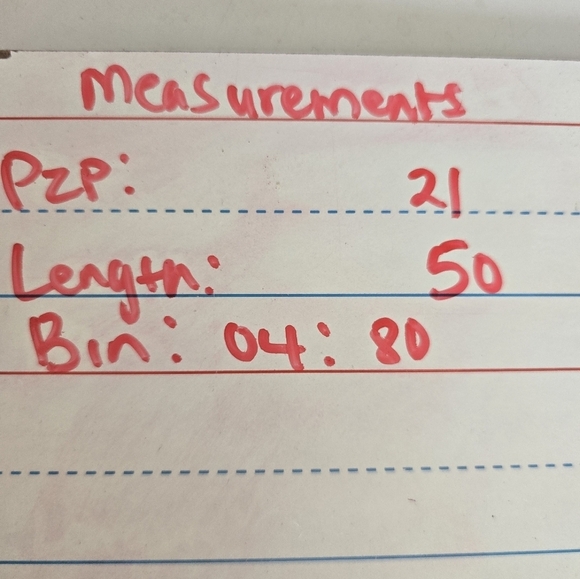 Measurements
PzP: 21
Length: 50
Bin: 04: 80